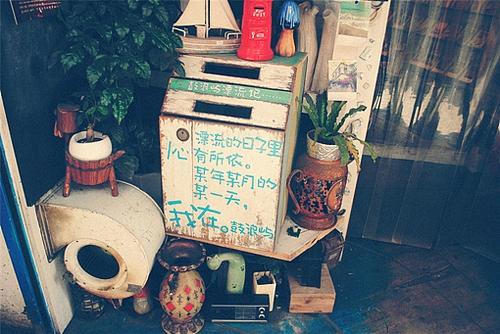 鼓浪屿漂流记......
漂流的日子里
心有所依。
某年某月的
某一天，
我在。鼓浪屿
POST
CE